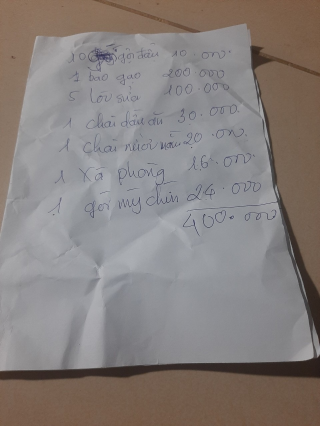 10 gội đầu 10.000
1 bao gạo 200.000
5 lốc sữa 100.000
1 chai dầu ăn 30.000
1 chai nước mắm 20.000
1 xà phòng 16.000
1 gói mỳ chín 24.000
400.000